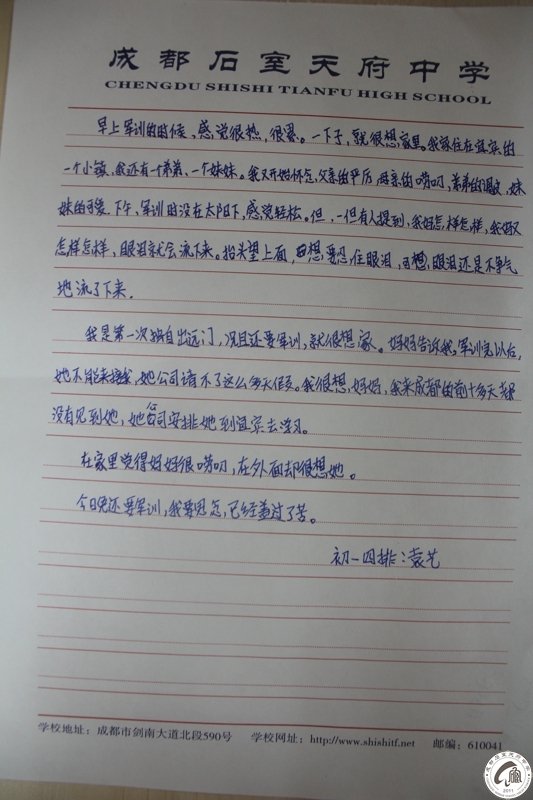 成都石室天府中学
CHENGDU SHISHI TIANFU HIGH SCHOOL
早上军训的时候,感觉很热,很累。一下子,就很想家里。我家住在宜宾的
一个小镇,我还有一个弟弟、一个妹妹。我又开始怀念,父亲的严厉,母亲的唠叨,弟弟的调皮,妹
妹的可爱。下午,军训时没在太阳下,感觉轻松。但,一但有人提到,我妈怎样怎样,我妈又
怎样怎样,眼泪就会流下来。抬头望上面,想要忍住眼泪,可想,眼泪还是不争气
地流了下来.
我是第一次独自出远门,况且还要军训,就很想家。妈妈告诉我,军训完以后,
她不能来接我,她公司请不了这么多天假。我很想,妈妈,我来成都的前十多天都
没有见到她,她公司安排她到宜宾去学习。
在家里觉得妈妈很唠叨,在外面却很想她。
今日晚还要军训,我要思念,已经盖过了苦。
初一四排:袁艺
学校地址:成都市剑南大道北段590号 学校网址:http://www.shishitf.net 邮编:610041
2011